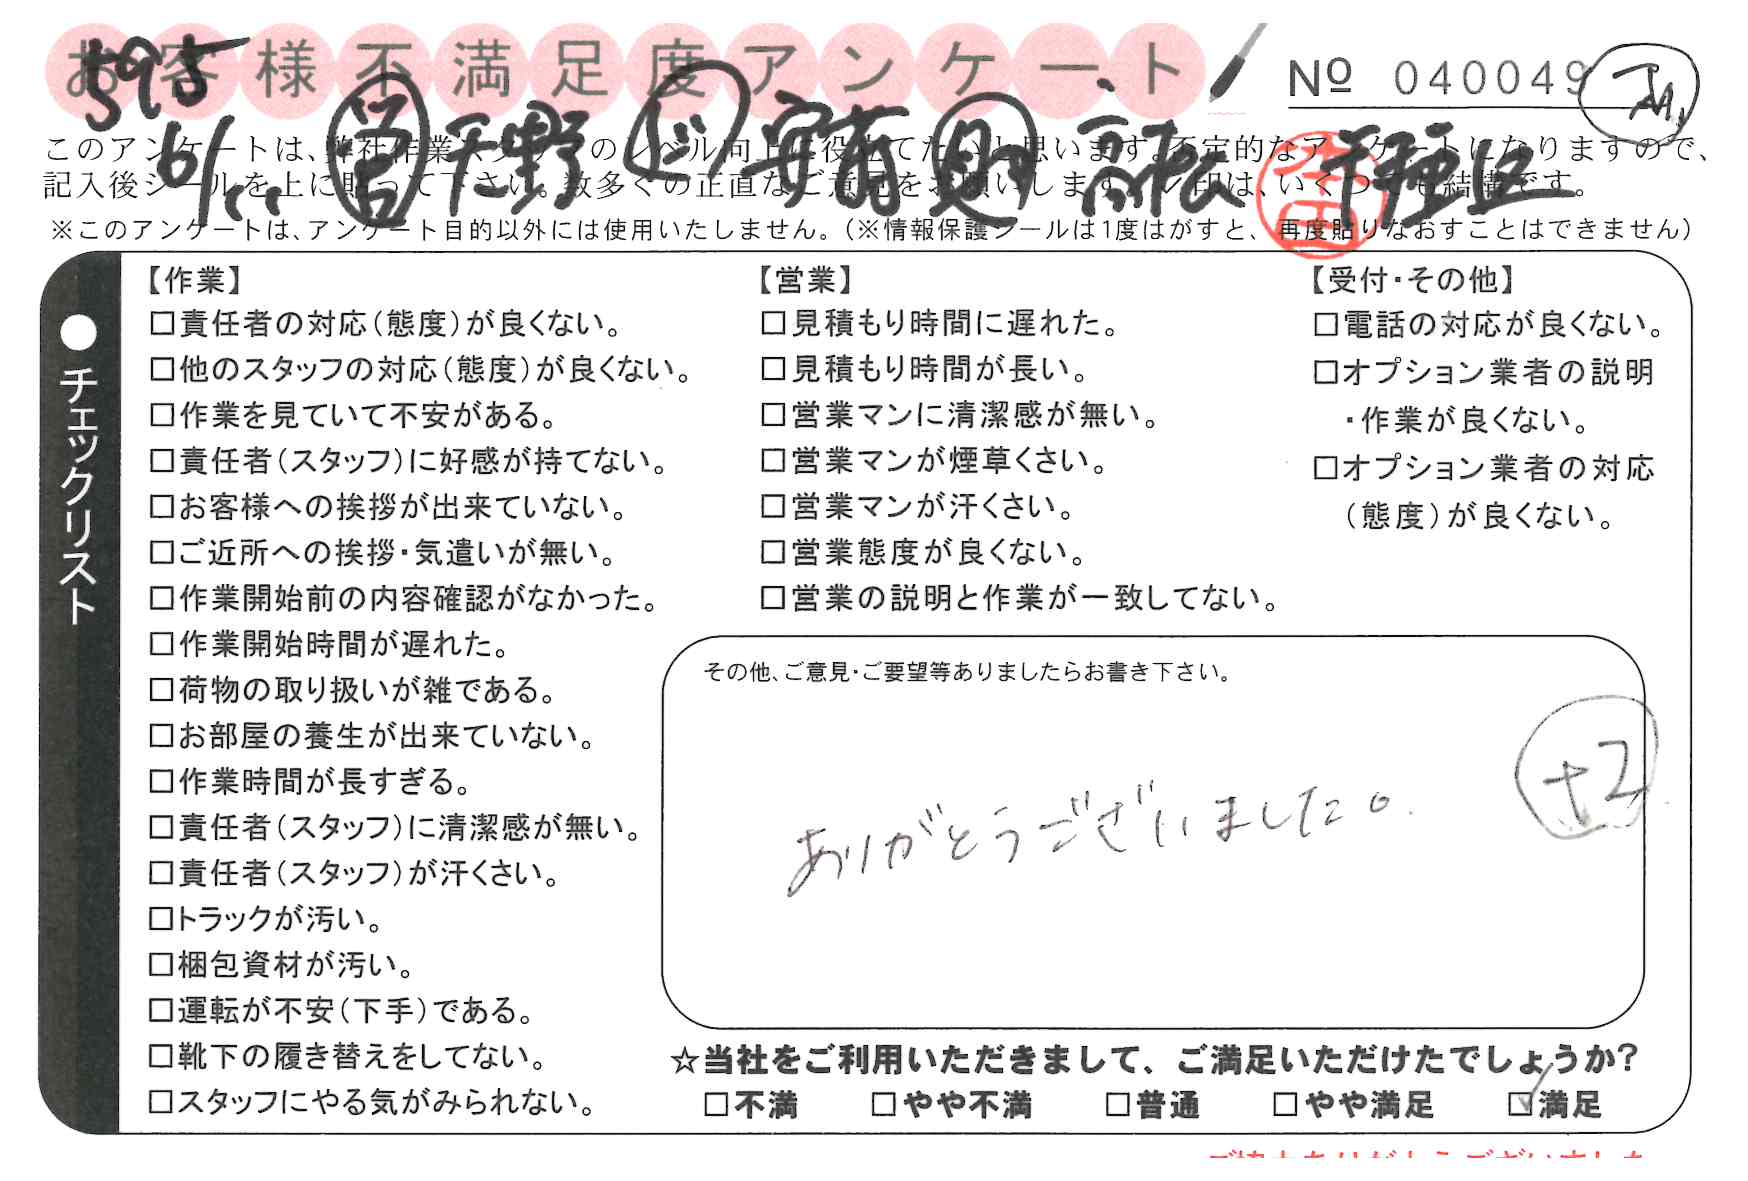 お客様不満足度アンケート
No 040049
595
6/22
天野
高松
千種区
このアンケートは、弊社作業スタッフのレベル向上に役立てたいと思います。不定的なアンケートになりますので、
記入後シールを上に貼って下さい。数多くの正直なご意見をお願いします。レ印は、いくつでも結構です。
※このアンケートは、アンケート目的以外には使用いたしません。（※情報保護シールは1度はがすと、再度貼りなおすことはできません）
●チェックリスト
【作業】
□責任者の対応（態度）が良くない。
□他のスタッフの対応（態度）が良くない。
□作業を見ていて不安がある。
□責任者（スタッフ）に好感が持てない。
□お客様への挨拶が出来ていない。
□ご近所への挨拶・気遣いが無い。
□作業開始前の内容確認がなかった。
□作業開始時間が遅れた。
□荷物の取り扱いが雑である。
□お部屋の養生が出来ていない。
□作業時間が長すぎる。
□責任者（スタッフ）に清潔感が無い。
□責任者（スタッフ）が汗くさい。
□トラックが汚い。
□梱包資材が汚い。
□運転が不安（下手）である。
□靴下の履き替えをしてない。
□スタッフにやる気がみられない。
【営業】
□見積もり時間に遅れた。
□見積もり時間が長い。
□営業マンに清潔感が無い。
□営業マンが煙草くさい。
□営業マンが汗くさい。
□営業態度が良くない。
□営業の説明と作業が一致してない。
【受付・その他】
□電話の対応が良くない。
□オプション業者の説明
・作業が良くない。
□オプション業者の対応
（態度）が良くない。
その他、ご意見・ご要望等ありましたらお書き下さい。
ありがとうございました。
+2
☆当社をご利用いただきまして、ご満足いただけたでしょうか?
□不満 □やや不満 □普通 □やや満足 ☑満足
ご協力ありがとうございました